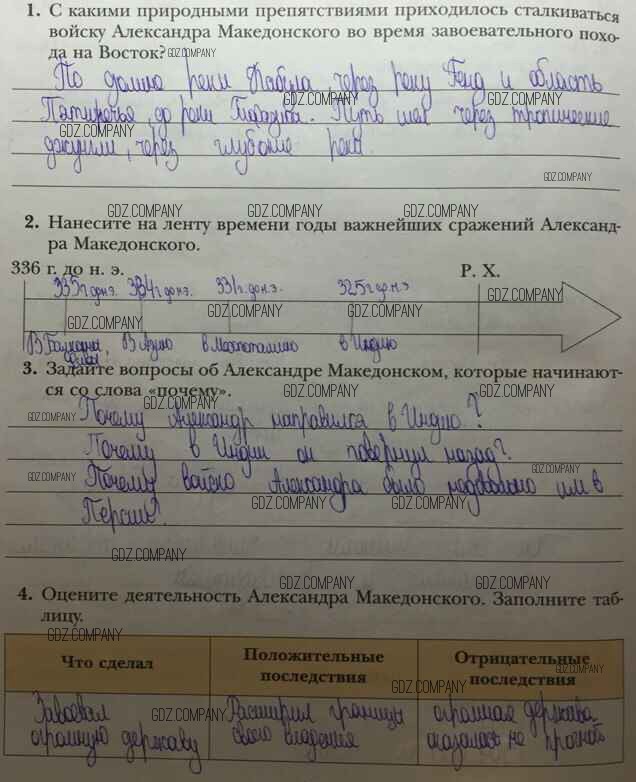 1. С какими природными препятствиями приходилось сталкиваться
войску Александра Македонского во время завоевательного похо-
да на Восток? GDZ.COMPANY
По долине реки Кабула через реку Генд и область
GDZ.COMPANY
Пятиречья, до реки Гифазиса. Путь шел через тропические
GDZ.COMPANY
джунгли, через глубокие реки
GDZ.COMPANY
GDZ.COMPANY GDZ.COMPANY GDZ.COMPANY
2. Нанесите на ленту времени годы важнейших сражений Александ-
ра Македонского.
336 г. до н. э. Р. Х.
335г до н.э. 334г до н.э. 331г. до н.э. 325г до н.э
GDZ.COMPANY GDZ.COMPANY GDZ.COMPANY
В Балканы, В Азию в Месопотамию в Индию
3. Задайте вопросы об Александре Македонском, которые начинают-
ся со слова «почему». GDZ.COMPANY GDZ.COMPANY
GDZ.COMPANY GDZ.COMPANY
Почему Александр направился в Индию?
Почему в Индии он повернул назад?
GDZ.COMPANY GDZ.COMPANY GDZ.COMPANY
Почему войско Александра было недовольно им в
GDZ.COMPANY GDZ.COMPANY
Персии?
GDZ.COMPANY
GDZ.COMPANY GDZ.COMPANY
4. Оцените деятельность Александра Македонского. Заполните таб-
лицу.
GDZ.COMPANY
Что сделал Положительные последствия Отрицательные последствия
GDZ.COMPANY GDZ.COMPANY
Завоевал Расширил границы огромная держава
GDZ.COMPANY GDZ.COMPANY
огромную державу своего владения оказалась не прочной